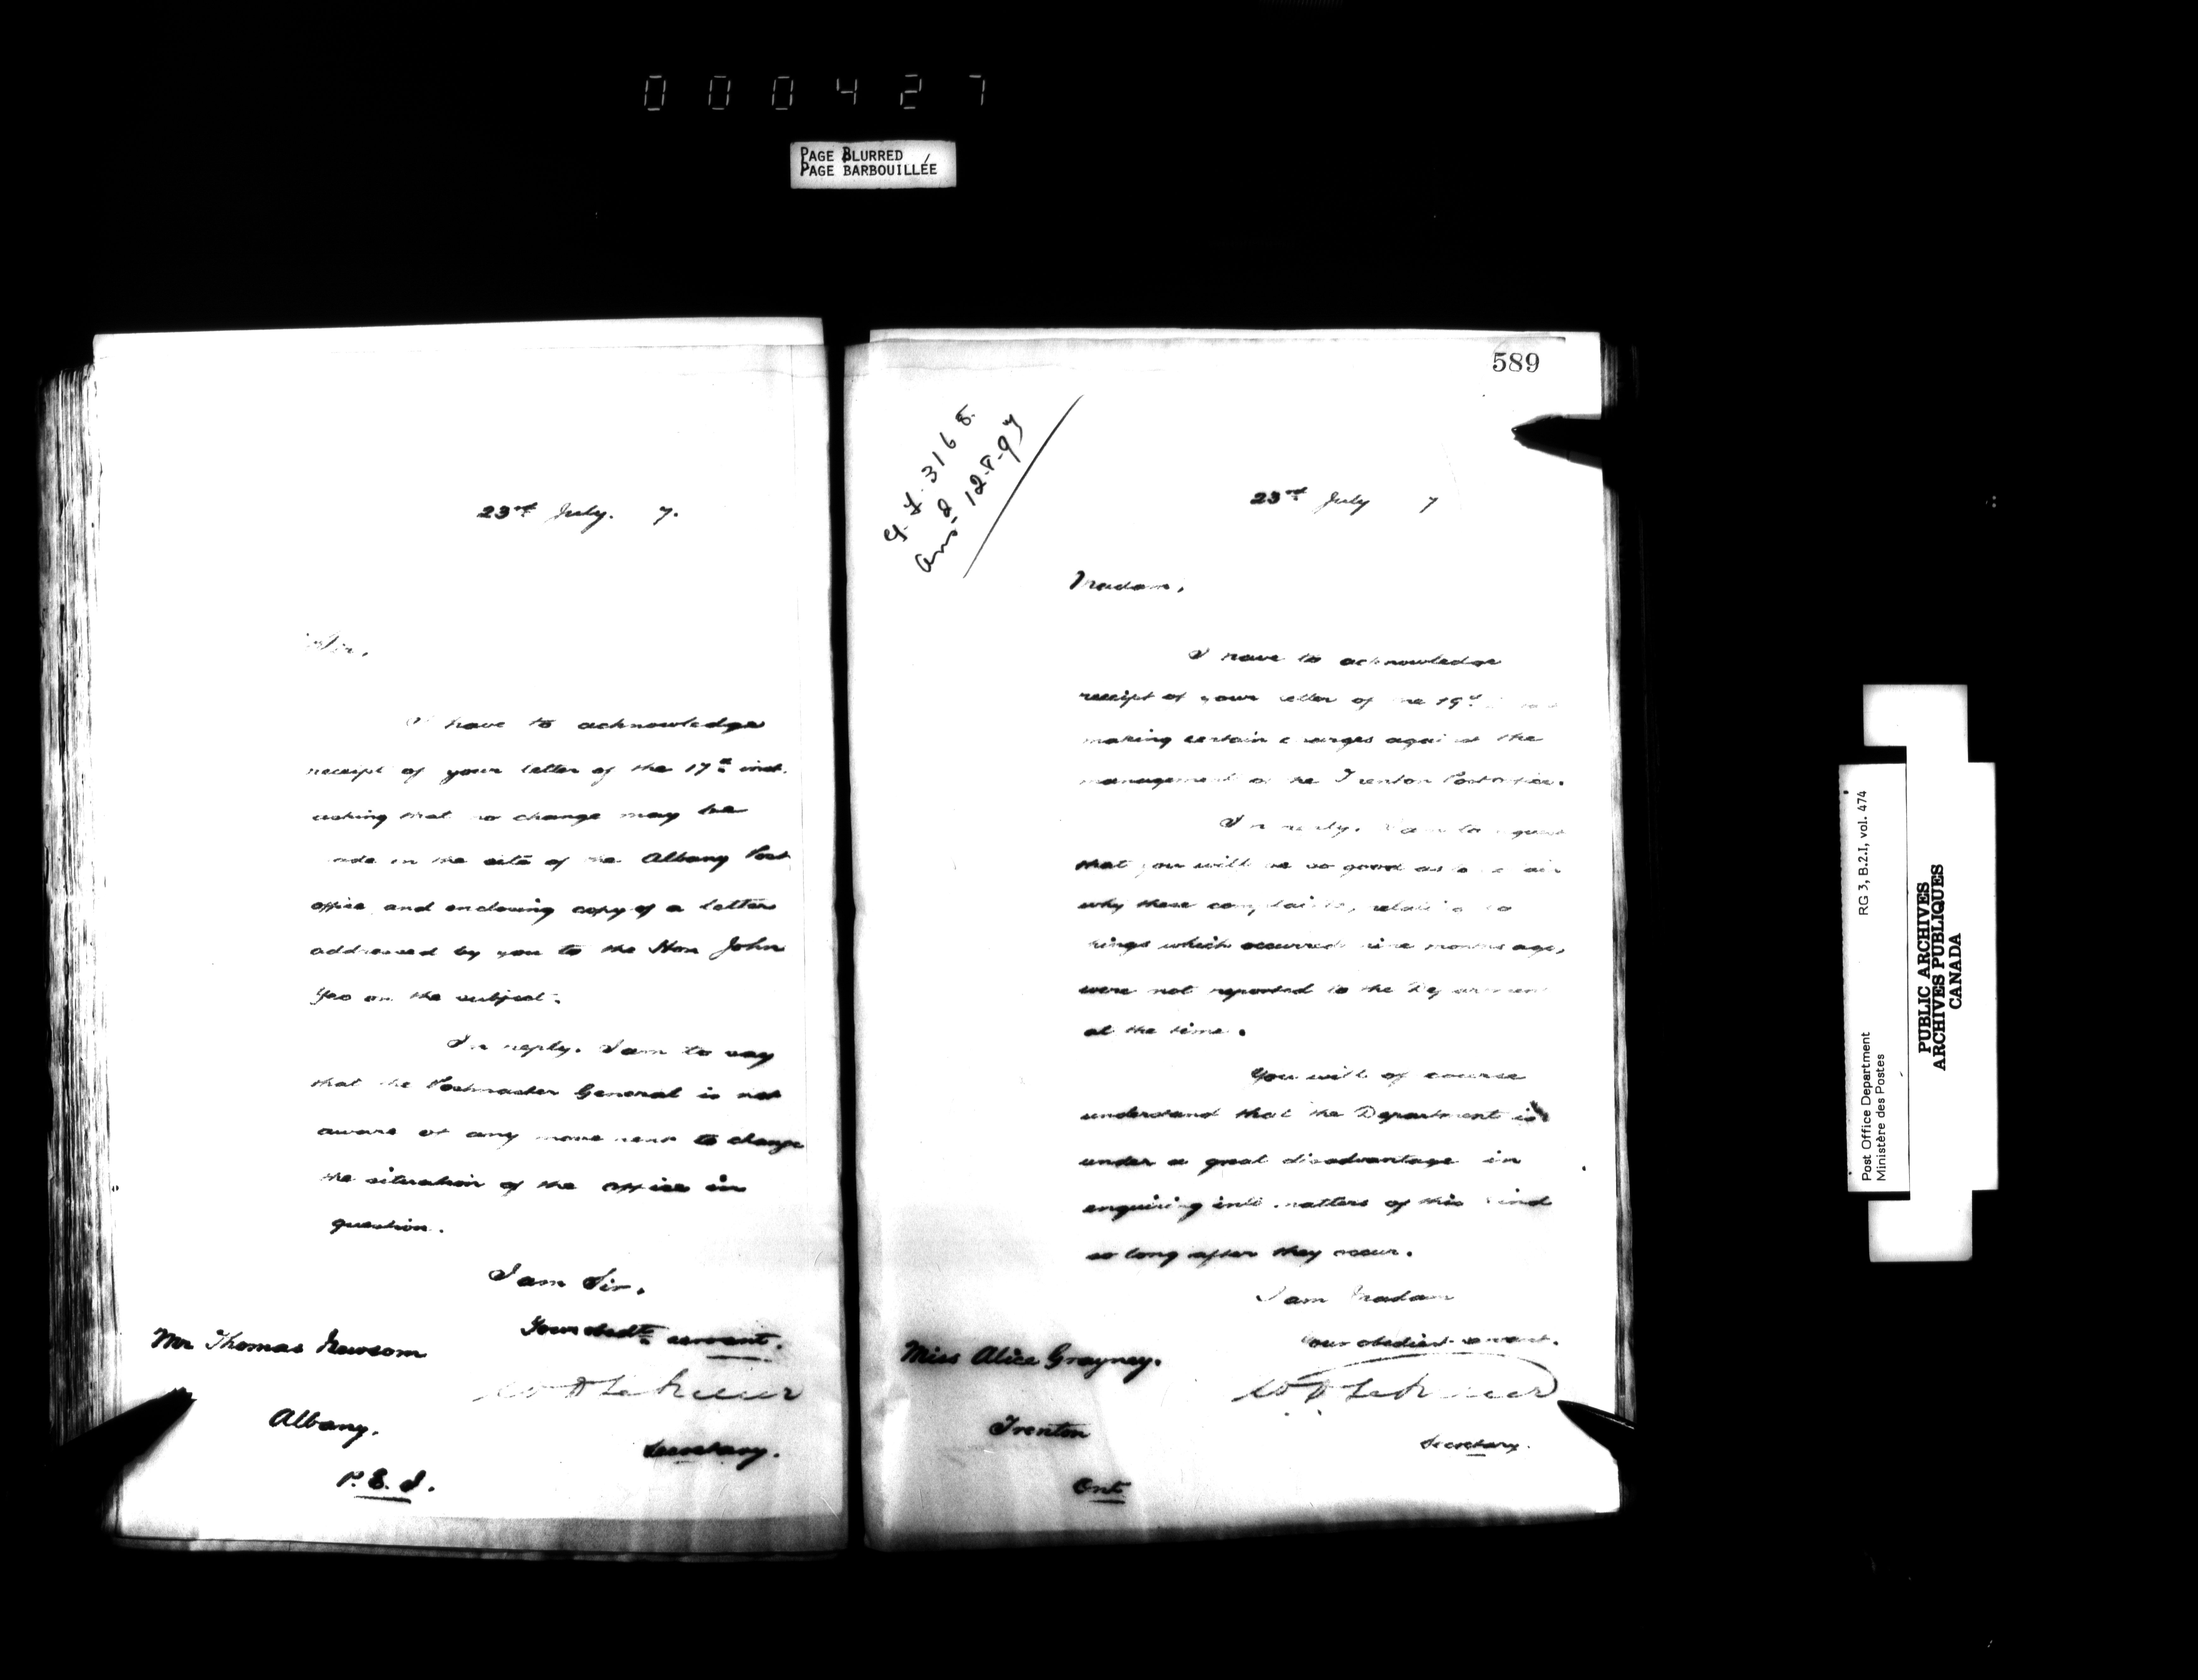 0 0 0 4 2 7
PAGE BLURRED
PAGE BARBOUILLÉE
23rd July. 7.
Sir,
I have to acknowledge
receipt of your letter of the 17th inst.
asking that no change may be
made in the site of the Albany Post
office and enclosing copy of a letter
addressed by you to the Hon John
Yeo on the subject.
In reply, I am to say
that the Postmaster General is not
aware of any movement to change
the situation of the office in
question.
I am Sir,
Your obedt servant.
Mr Thomas Newsom
W D LeSueur
Albany,
Secretary.
P.E.I.
589
3168
Ans 12-8-97
23rd July 7
Madam,
I have to acknowledge
receipt of your letter of the 19th
making certain charges against the
management of the Trenton Post office.
In reply, I am to request
that you will be so good as to
why these complaints, relating to
things which occurred nine months ago,
were not reported to the Department
at the time.
You will of course
understand that the Department is
under a great disadvantage in
enquiring into matters of this kind
so long after they occur.
I am Madam
Your obedient servant.
Miss Alice Grayney.
W D LeSueur
Trenton
Secretary.
Ont
Post Office Department
Ministère des Postes
RG 3, B.2.I, vol. 474
PUBLIC ARCHIVES
ARCHIVES PUBLIQUES
CANADA